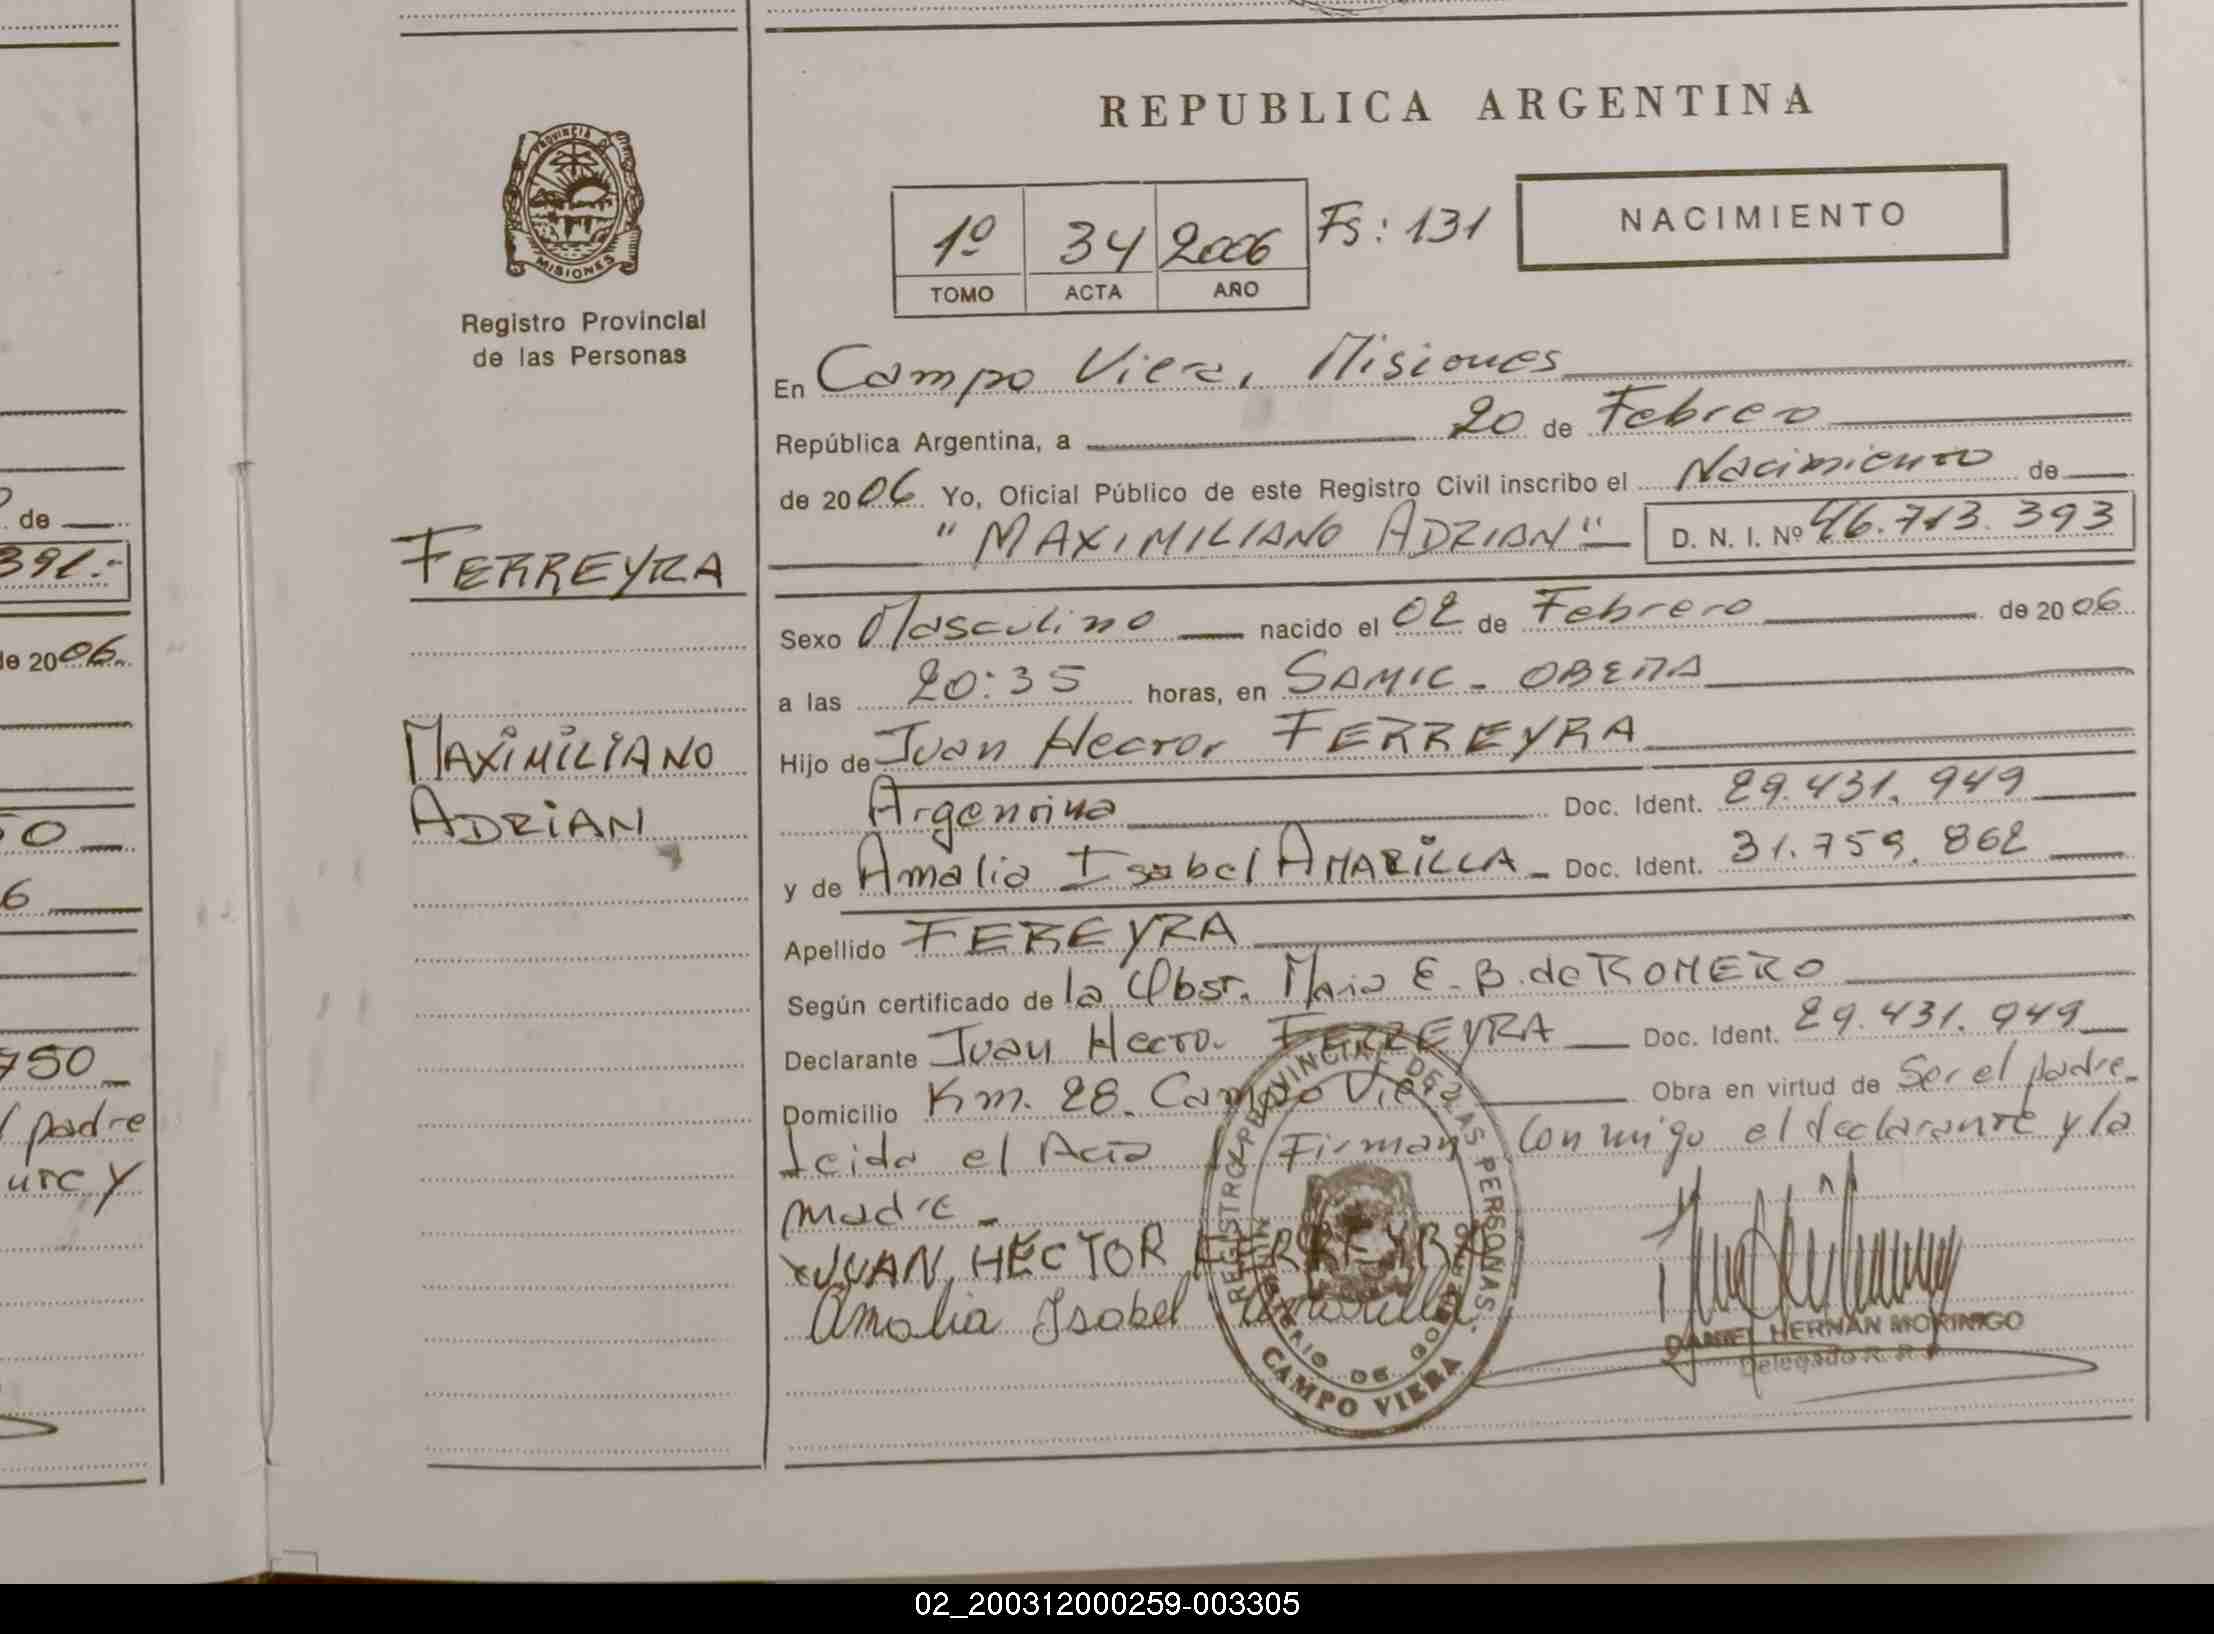 de
391.-
de 2006.
50
6
750
padre
y
PROVINCIA DE
MISIONES
Registro Provincial
de las Personas
FERREYRA
MAXIMILIANO
ADRIAN
REPUBLICA ARGENTINA
1º 34 2006 Fs: 131
TOMO ACTA AÑO
NACIMIENTO
En Campo Viera, Misiones
República Argentina, a 20 de Febrero
de 2006. Yo, Oficial Público de este Registro Civil inscribo el Nacimiento de
"MAXIMILIANO ADRIAN" D. N. I. Nº 46.713.393
Sexo Masculino nacido el 02 de Febrero de 2006
a las 20:35 horas, en SAMIC - OBERA
Hijo de Juan Hector FERREYRA
Argentina Doc. Ident. 29.431.949
y de Amalia Isabel AMARILLA Doc. Ident. 31.759.862
Apellido FEREYRA
Según certificado de la Obst. Maria E. B. de ROMERO
Declarante Juan Hector FERREYRA Doc. Ident. 29.431.949
Domicilio Km. 28. Campo Viera Obra en virtud de Ser el padre.
Leida el Acta Firman Conmigo el declarante y la
madre -
JUAN HECTOR FERREYRA
Amalia Isabel Amarilla
REGISTRO PROVINCIAL DE LAS PERSONAS
CAMPO VIERA
DANIEL HERNAN MORINIGO
Delegado R. P. P.
02_200312000259-003305